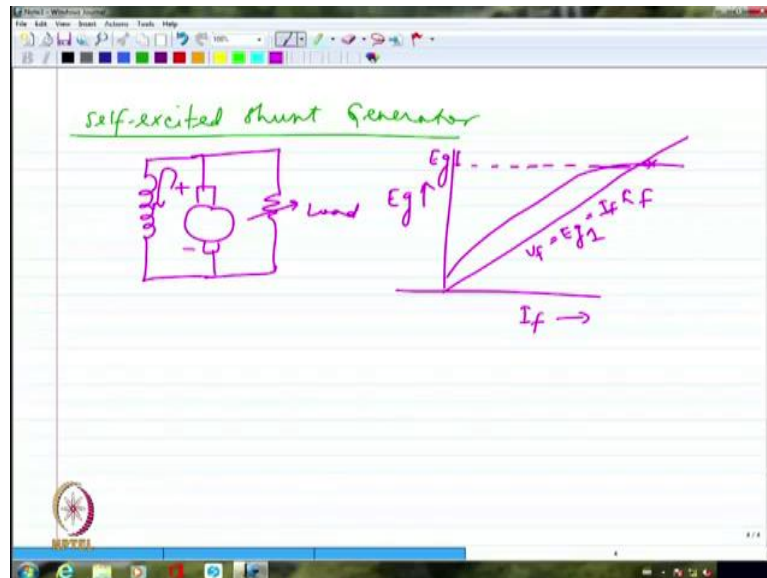 Note1 - Windows Journal
File Edit View Insert Actions Tools Help
100%
B I
self-excited shunt Generator
+
-
Load
Eg1
Eg ↑
Vf = Eg1 = If Rf
If →
NPTEL
4 / 4
4